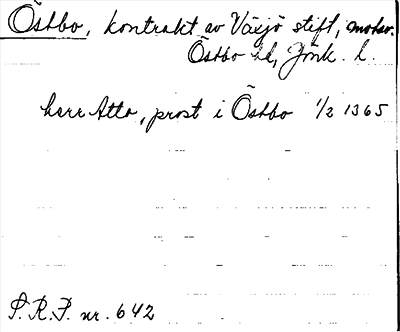 Östbo, kontrakt av Växjö stift, motsv.
Östbo hd, Jönk. l.
herr Atto, prost i Östbo 1/2 1365
S.R.P. nr. 642